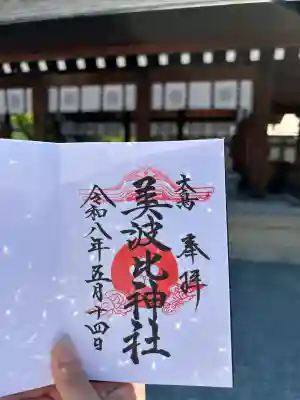 奉拝
大鳥
美波比神社
令和八年五月十四日